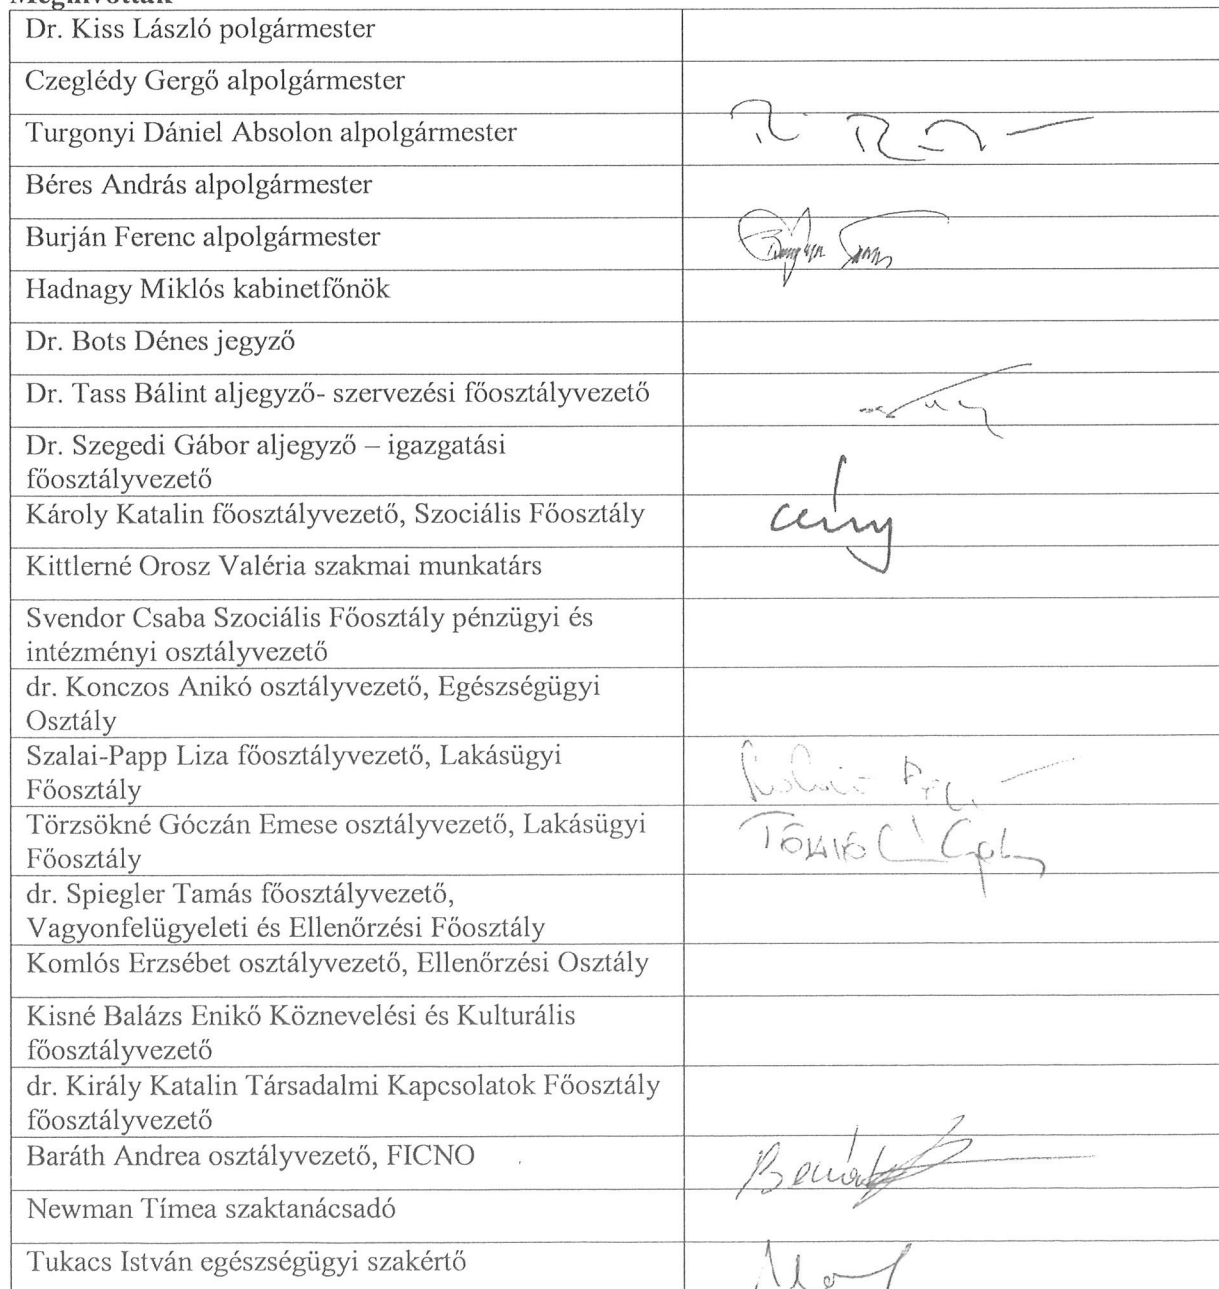 Meghívottak
Dr. Kiss László polgármester
Czeglédy Gergő alpolgármester
Turgonyi Dániel Absolon alpolgármester
Béres András alpolgármester
Burján Ferenc alpolgármester
Hadnagy Miklós kabinetfőnök
Dr. Bots Dénes jegyző
Dr. Tass Bálint aljegyző- szervezési főosztályvezető
Dr. Szegedi Gábor aljegyző – igazgatási
főosztályvezető
Károly Katalin főosztályvezető, Szociális Főosztály
Kittlerné Orosz Valéria szakmai munkatárs
Svendor Csaba Szociális Főosztály pénzügyi és
intézményi osztályvezető
dr. Konczos Anikó osztályvezető, Egészségügyi
Osztály
Szalai-Papp Liza főosztályvezető, Lakásügyi
Főosztály
Törzsökné Góczán Emese osztályvezető, Lakásügyi
Főosztály
dr. Spiegler Tamás főosztályvezető,
Vagyonfelügyeleti és Ellenőrzési Főosztály
Komlós Erzsébet osztályvezető, Ellenőrzési Osztály
Kisné Balázs Enikő Köznevelési és Kulturális
főosztályvezető
dr. Király Katalin Társadalmi Kapcsolatok Főosztály
főosztályvezető
Baráth Andrea osztályvezető, FICNO
Newman Tímea szaktanácsadó
Tukacs István egészségügyi szakértő